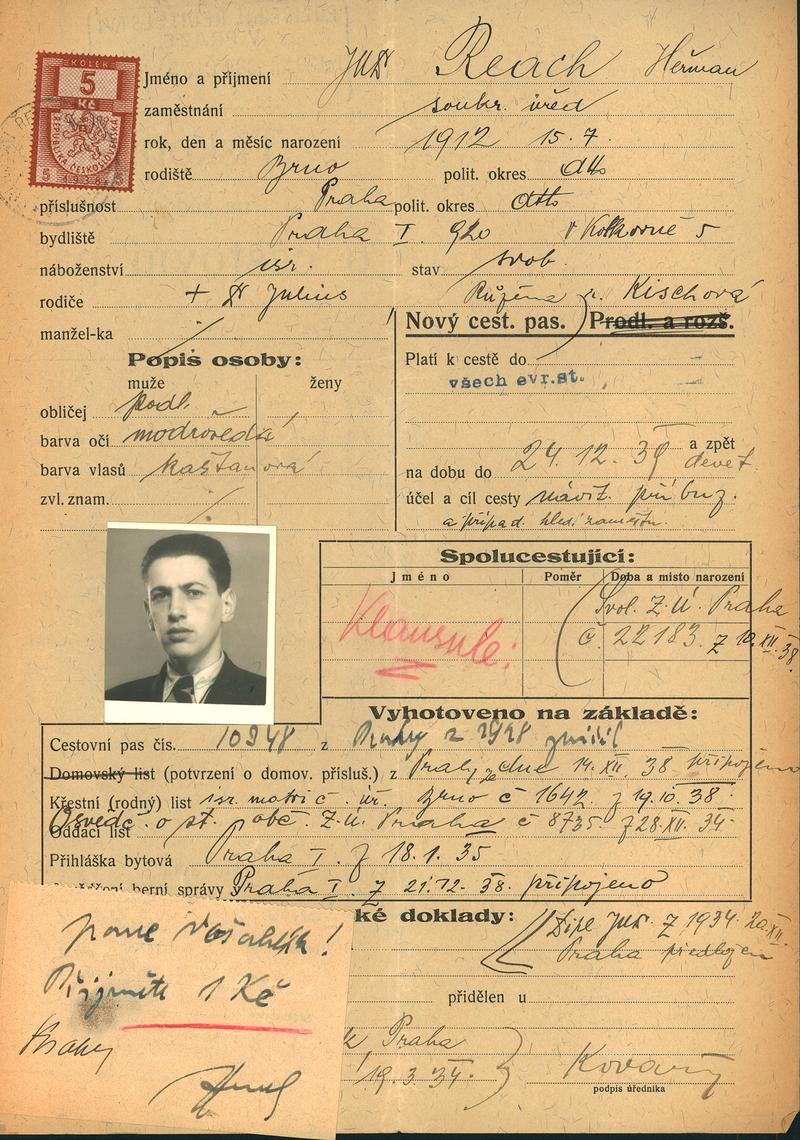 KOLEK
5
Kč
REPUBLIKA ČESKOSLOVENSKÁ
5 1938 5
Jméno a příjmení JUDr Reach Heřman
zaměstnání soukr. úřed
rok, den a měsíc narození 1912 15. 7.
rodiště Brno polit. okres dtto
příslušnost Praha polit. okres dtto
bydliště Praha I. 920 v Kolkovně 5
náboženství isr. stav svob.
rodiče + Dr Julius Růžena r. Kischová
manžel-ka
Nový cest. pas. Prodl. a rozš.
Popis osoby:
muže ženy
obličej podl.
barva očí modrošedá
barva vlasů kaštanová
zvl. znam.
Platí k cestě do
všech evr.st.
na dobu do 24. 12. 39 a zpět
devět
účel a cíl cesty návšt. příbuz.
a případ. hled. zaměstn.
Spolucestující:
Jméno Poměr Doba a místo narození
Klausule!
Svol. Z. Ú. Praha
č. 22183 z 10. XII. 38
Vyhotoveno na základě:
Cestovní pas čís. 10948 z Prahy z 1928
Domovský list (potvrzení o domov. přísluš.) z Prahy ze dne 14. XII. 38 připojeno
Křestní (rodný) list isr. matrič. úř. Brno č 1642 z 19. 10. 38
Osvědč. o st. obč. Z. Ú. Praha č 8735 z 28. XII. 34
Oddací list
Přihláška bytová Praha I. z 18. 1. 35
berní správy Praha I. z 21. 12. 38. připojeno
ké doklady: Dipl JUDr. z 1934 20. XII.
Praha předložen
přidělen u
Praha
19. 3. 34
podpis úředníka
pane !
Přijměte 1 Kč